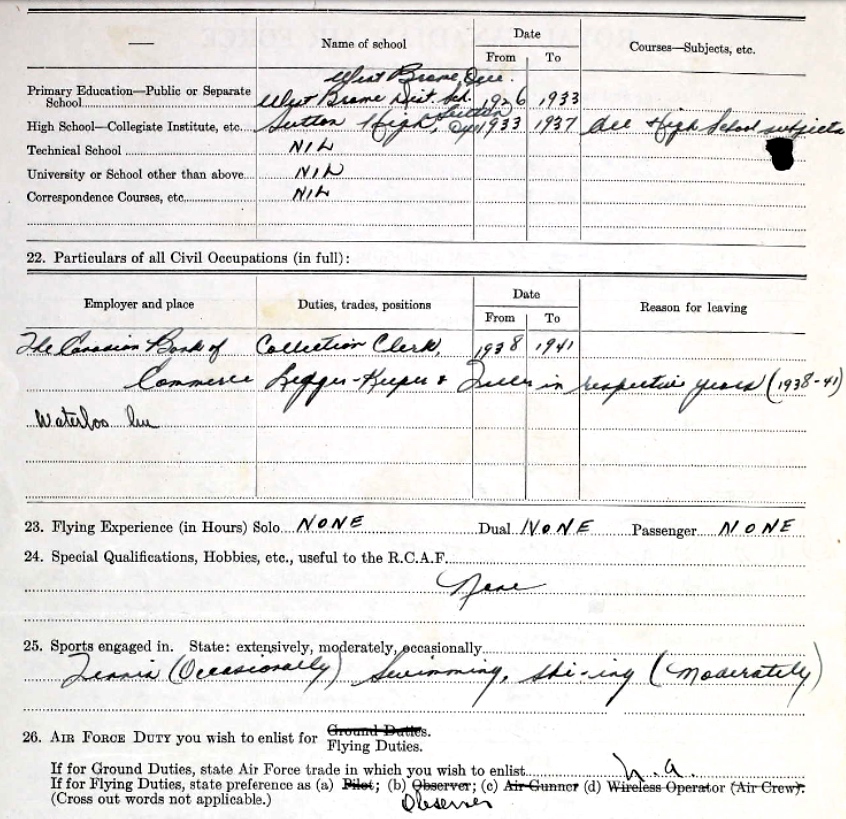 Name of school
Date
Courses—Subjects, etc.
From To
West Brome, Que.
Primary Education—Public or Separate
School West Brome Dist. Sch. 1926 1933
High School—Collegiate Institute, etc. Sutton High, Sutton Que 1933 1937 All High School subjects
Technical School NIL
University or School other than above NIL
Correspondence Courses, etc. NIL
22. Particulars of all Civil Occupations (in full):
Employer and place Duties, trades, positions Date Reason for leaving
From To
The Canadian Bank of Collection Clerk, 1938 1941
Commerce Legger-Keeper & Teller in respective years (1938-41)
Waterloo Que
23. Flying Experience (in Hours) Solo NONE Dual NONE Passenger NONE
24. Special Qualifications, Hobbies, etc., useful to the R.C.A.F.
None
25. Sports engaged in. State: extensively, moderately, occasionally
Tennis (Occasionally) Swimming, Ski-ing (Moderately)
26. AIR FORCE DUTY you wish to enlist for Ground Duties.
Flying Duties.
If for Ground Duties, state Air Force trade in which you wish to enlist N.A.
If for Flying Duties, state preference as (a) Pilot; (b) Observer; (c) Air Gunner (d) Wireless Operator (Air Crew).
(Cross out words not applicable.) Observer